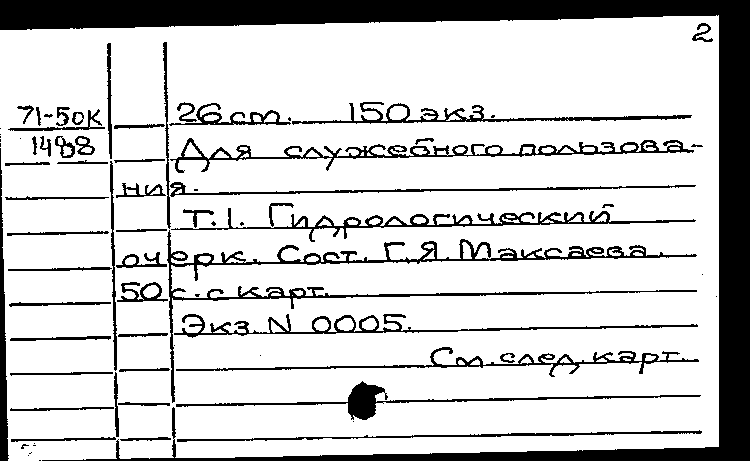 2
71-50К 26 ст. 150 экз.
1488 Для служебного пользова-
ния.
Т.1. Гидрологический
очерк. Сост. Г.Я. Максаева.
50 с. с карт.
Экз. N 0005.
См. след. карт.